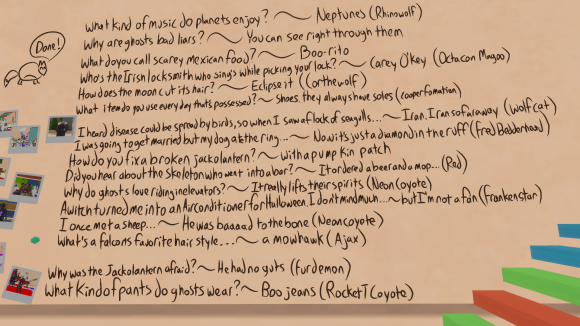 What kind of music do planets enjoy? ~ Neptunes (Rhinowolf)
Why are ghosts bad liars? ~ You can see right through them
Done!
What do you call scarey mexican food? ~ Boo-rito
Who's the Irish locksmith who sings while picking your lock? ~ Carey O'key (Octacon Magoo)
How does the moon cut its hair? ~ Eclipse it (Corthewolf)
What item do you use every day thats possessed? ~ Shoes. they always have soles (cooperfomation)
I heard disease could be spread by birds, so when I saw a flock of seagulls... ~ I ran. I ran so far away (wolfcat)
I was going to get married but my dog ate the ring... ~ Now it's just a diamond in the ruff (Fred Bedderhead)
How do you fix a broken jackolantern? ~ with a pumpkin patch
Did you hear about the skeleton who went into a bar? ~ It ordered a beer and a mop... (Red)
Why do ghosts love riding in elevators? ~ It really lifts their spirits (Neoncoyote)
A witch turned me into an Airconditioner for Halloween. I don't mind much... ~ but I'm not a fan (frankenstar)
I once met a sheep... ~ He was baaaad to the bone (Neoncoyote)
What's a falcons favorite hair style... ~ a mowhawk (Ajax)
Why was the Jackolantern afraid? ~ He had no guts (furdemon)
What kind of pants do ghosts wear? ~ Boo jeans (RocketTCoyote)